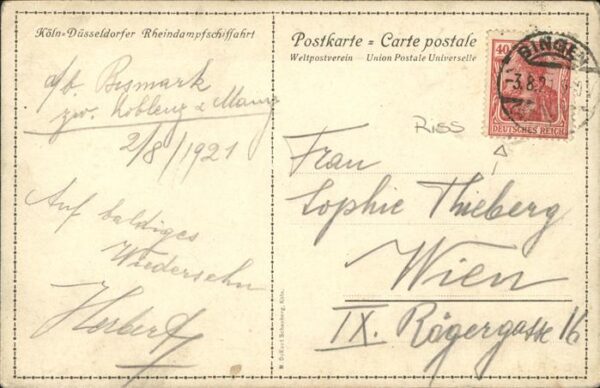 Köln=Düsseldorfer Rheindampfschiffahrt
d/b. Bismark
zw. Koblenz & Mainz
2/8/1921
Auf baldiges
Wiedersehn
Herbert
Postkarte = Carte postale
Weltpostverein Union Postale Universelle
40
DEUTSCHES REICH
BINGEN
-3.8.2
RISS
Frau
Sophie Thieberg
Wien
IX. Rögergasse 16